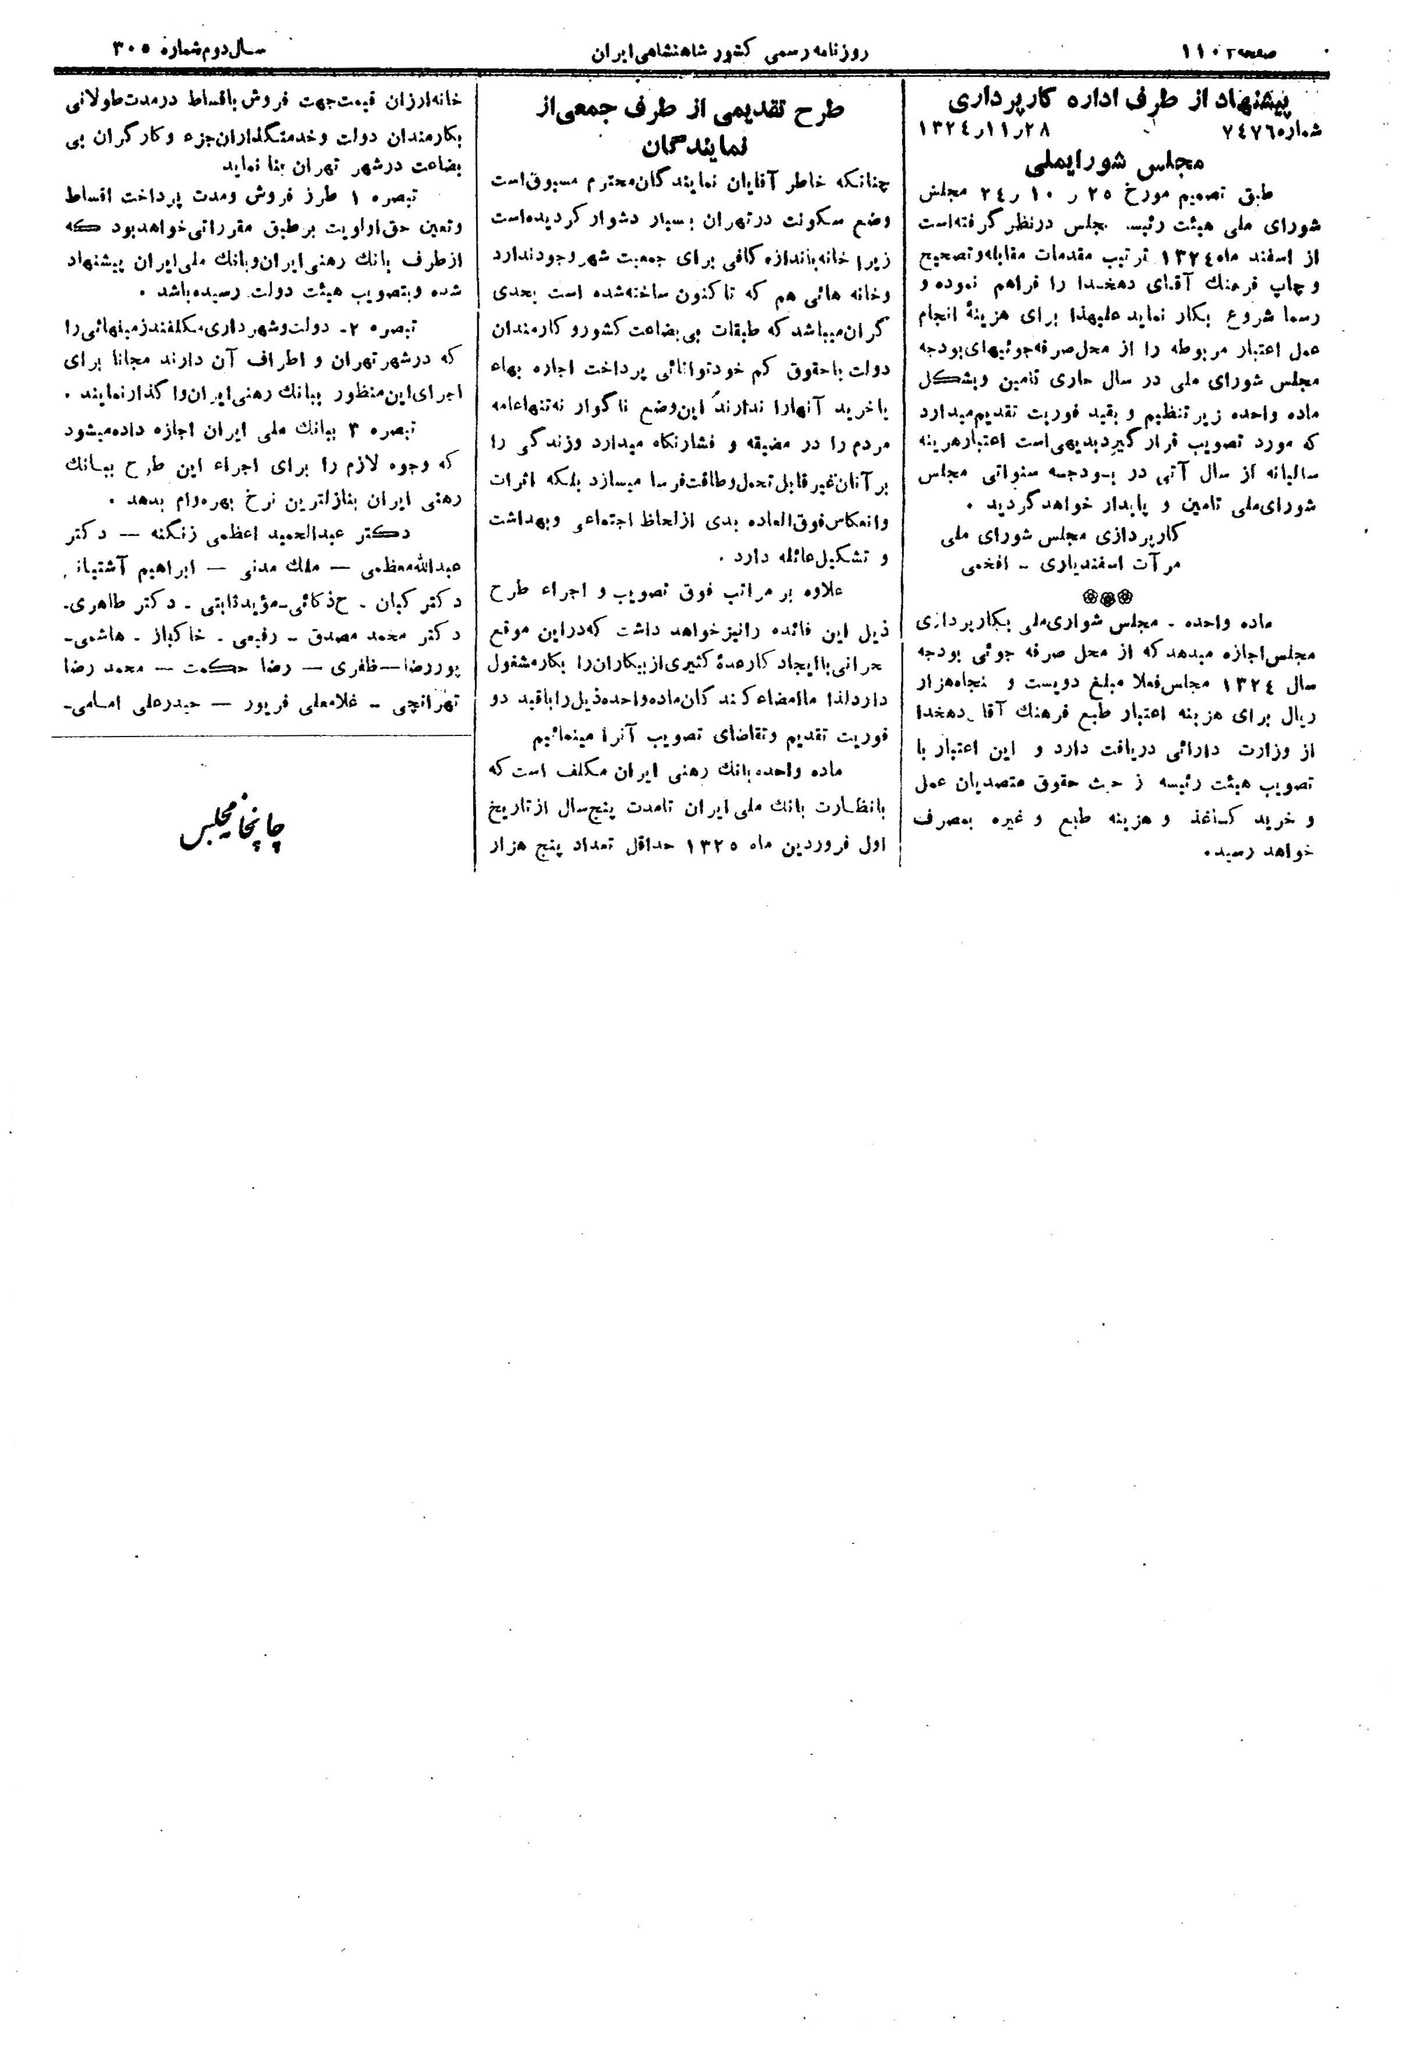 صفحه ۱۱۰۲
روزنامه رسمی کشور شاهنشاهی ایران
سال دوم شماره ۳۰۵
پیشنهاد از طرف اداره کارپردازی
شماره ۷۴۷۶ ۲۸ر۱۱ر۱۳۲۴
مجلس شورایملی
طبق تصمیم مورخ ۲۵ ر ۱۰ ر۲۴ مجلس
شورای ملی هیئت رئیسه مجلس درنظر گرفته است
از اسفند ماه ۱۳۲۴ ترتیب مقدمات مقابله و تصحیح
و چاپ فرهنك آقای دهخدا را فراهم نموده و
رسما شروع بکار نماید علیهذا برای هزینهٔ انجام
عمل اعتبار مربوطه را از محل صرفه جوئیهای بودجه
مجلس شورای ملی در سال جاری تامین و بشکل
ماده واحده زیر تنظیم و بقید فوریت تقدیم میدارد
که مورد تصویب قرار گیرد بدیهی است اعتبار هزینه
سالیانه از سال آتی در بودجه سنواتی مجلس
شورای ملی تامین و پایدار خواهد گردید .
کارپردازی مجلس شورای ملی
مرآت اسفندیاری - افخمی
ماده واحده - مجلس شوارى ملی بکارپردازی
مجلس اجازه میدهد که از محل صرفه جوئی بودجه
سال ۱۳۲۴ مجلس فعلا مبلغ دویست و نجاه هزار
ریال برای هزینه اعتبار طبع فرهنك آقا دهخدا
از وزارت دارائی دریافت دارد و این اعتبار با
تصویب هیئت رئیسه ز حیث حقوق متصدیان عمل
و خرید کاغذ و هزینه طبع و غیره بمصرف
خواهد رسید.
طرح تقدیمی از طرف جمعی از
نمایندگان
چنانکه خاطر آقایان نمایندگان محترم مسبوق است
وضع سکونت در تهران بسیار دشوار گردیده است
زیرا خانه باندازه کافی برای جمعیت شهر وجود ندارد
و خانه هائی هم که تا کنون ساخته شده است بحدی
گران میباشد که طبقات بی بضاعت کشور و کارمندان
دولت با حقوق کم خود توانائی پرداخت اجاره بهاء
یا خرید آنها را ندارند این وضع ناگوار نه تنها عامه
مردم را در مضیقه و فشار نگاه میدارد و زندگی را
بر آنان غیر قابل تحمل و طاقت فرسا میسازد بلکه اثرات
و انعکاس فوق العاده بدی از لحاظ اجتماعی و بهداشت
و تشکیل عائله دارد .
علاوه بر مراتب فوق تصویب و اجراء طرح
ذیل این فائده را نیز خواهد داشت که در این موقع
بحرانی با ایجاد کار عدهٔ کثیری از بیکاران را بکار مشغول
دارد لذا ما امضاء کنند گان ماده واحده ذیل را با قید دو
فوریت تقدیم و تقاضای تصویب آنرا مینمائیم
ماده واحده بانك رهنی ایران مکلف است که
با نظارت بانك ملی ایران تا مدت پنج سال از تاریخ
اول فروردین ماه ۱۳۲۵ حداقل تعداد پنج هزار
خانه ارزان قیمت جهت فروش باقساط در مدت طولانی
بکارمندان دولت و خدمتگذاران جزء و کارگران بی
بضاعت در شهر تهران بنا نماید
تبصره ۱ طرز فروش و مدت پرداخت اقساط
و تعین حق اولویت بر طبق مقرراتی خواهد بود که
از طرف بانك رهنی ایران و بانك ملی ایران پیشنهاد
شده و بتصویب هیئت دولت رسیده باشد .
تبصره ۲- دولت و شهرداری مکلفند زمینهائی را
که در شهر تهران و اطراف آن دارند مجانا برای
اجرای این منظور ببانك رهنی ایران واگذار نمایند .
تبصره ۳ ببانك ملی ایران اجازه داده میشود
که وجوه لازم را برای اجراء این طرح ببانك
رهنی ایران بنازلترین نرخ بهره وام بدهد .
دکتر عبدالحمید اعظمی زنگنه — دکتر
عبدالله معظمی — ملك مدنی — ابراهیم آشتیانی
دکتر کیان - ح ذکائی - مؤید ثابتی - دکتر طاهری-
دکتر محمد مصدق - رفیعی - خاکباز - هاشمی-
پوررضا — ظفری — رضا حکمت — محمد رضا
تهرانچی - غلامعلی فریور — حیدرعلی امامی-
چاپخانه مجلس